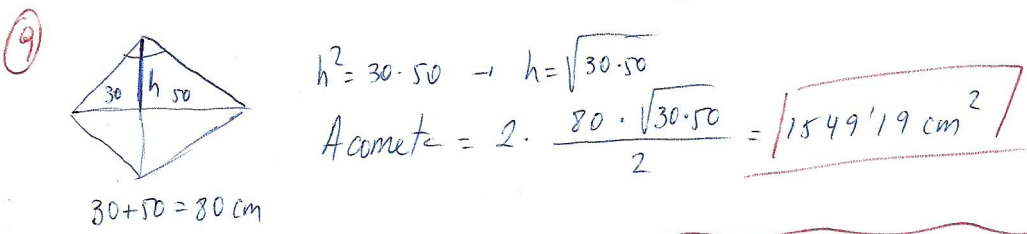 9
30 h 50
30+50 = 80 cm
h² = 30·50 → h = √30·50
A cometa = 2 · 80 · √30·50 / 2 = 1549'19 cm²